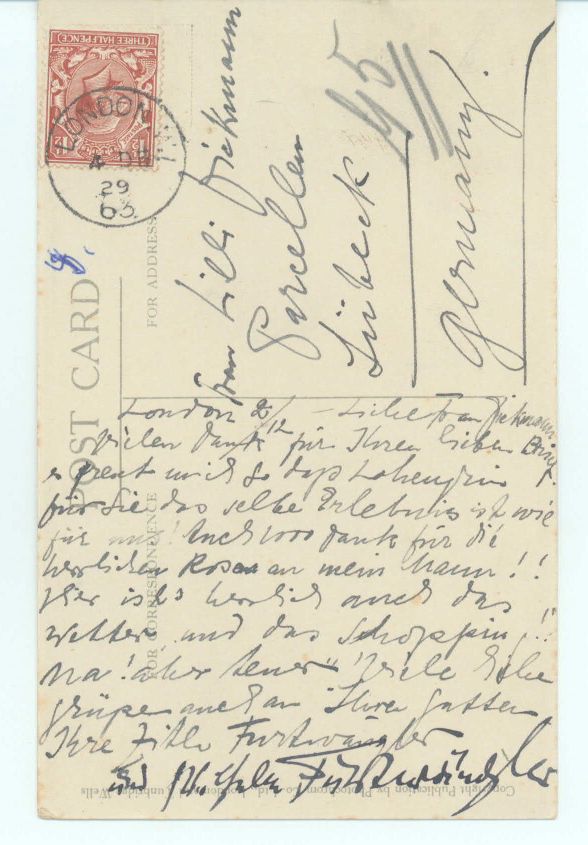 THREE HALFPENCE
LONDON. W.1
4 DE
29
63
POST CARD
FOR ADDRESS
FOR CORRESPONDENCE
45
Frau Lilli Dieckmann
Parcellen
Lübeck
Germany.
London 2/12 – Liebe Frau Dieckmann
Vielen Dank für Ihren lieben Brief.
es freut mich so dass Lohengrin
für Sie das selbe Erlebnis ist wie
für uns! Auch 1000 Dank für die
herrlichen Rosen an mein Mann!!
Hier ist es herrlich auch das
Wetter und das Shoppin!!
Na! aber teuer! Viele liebe
Grüße auch an Ihren Gatten
Ihre Zitla Furtwängler
und Wilhelm Furtwängler
Copyright Publication by Photochrom Co. Ltd., London and Tunbridge Wells